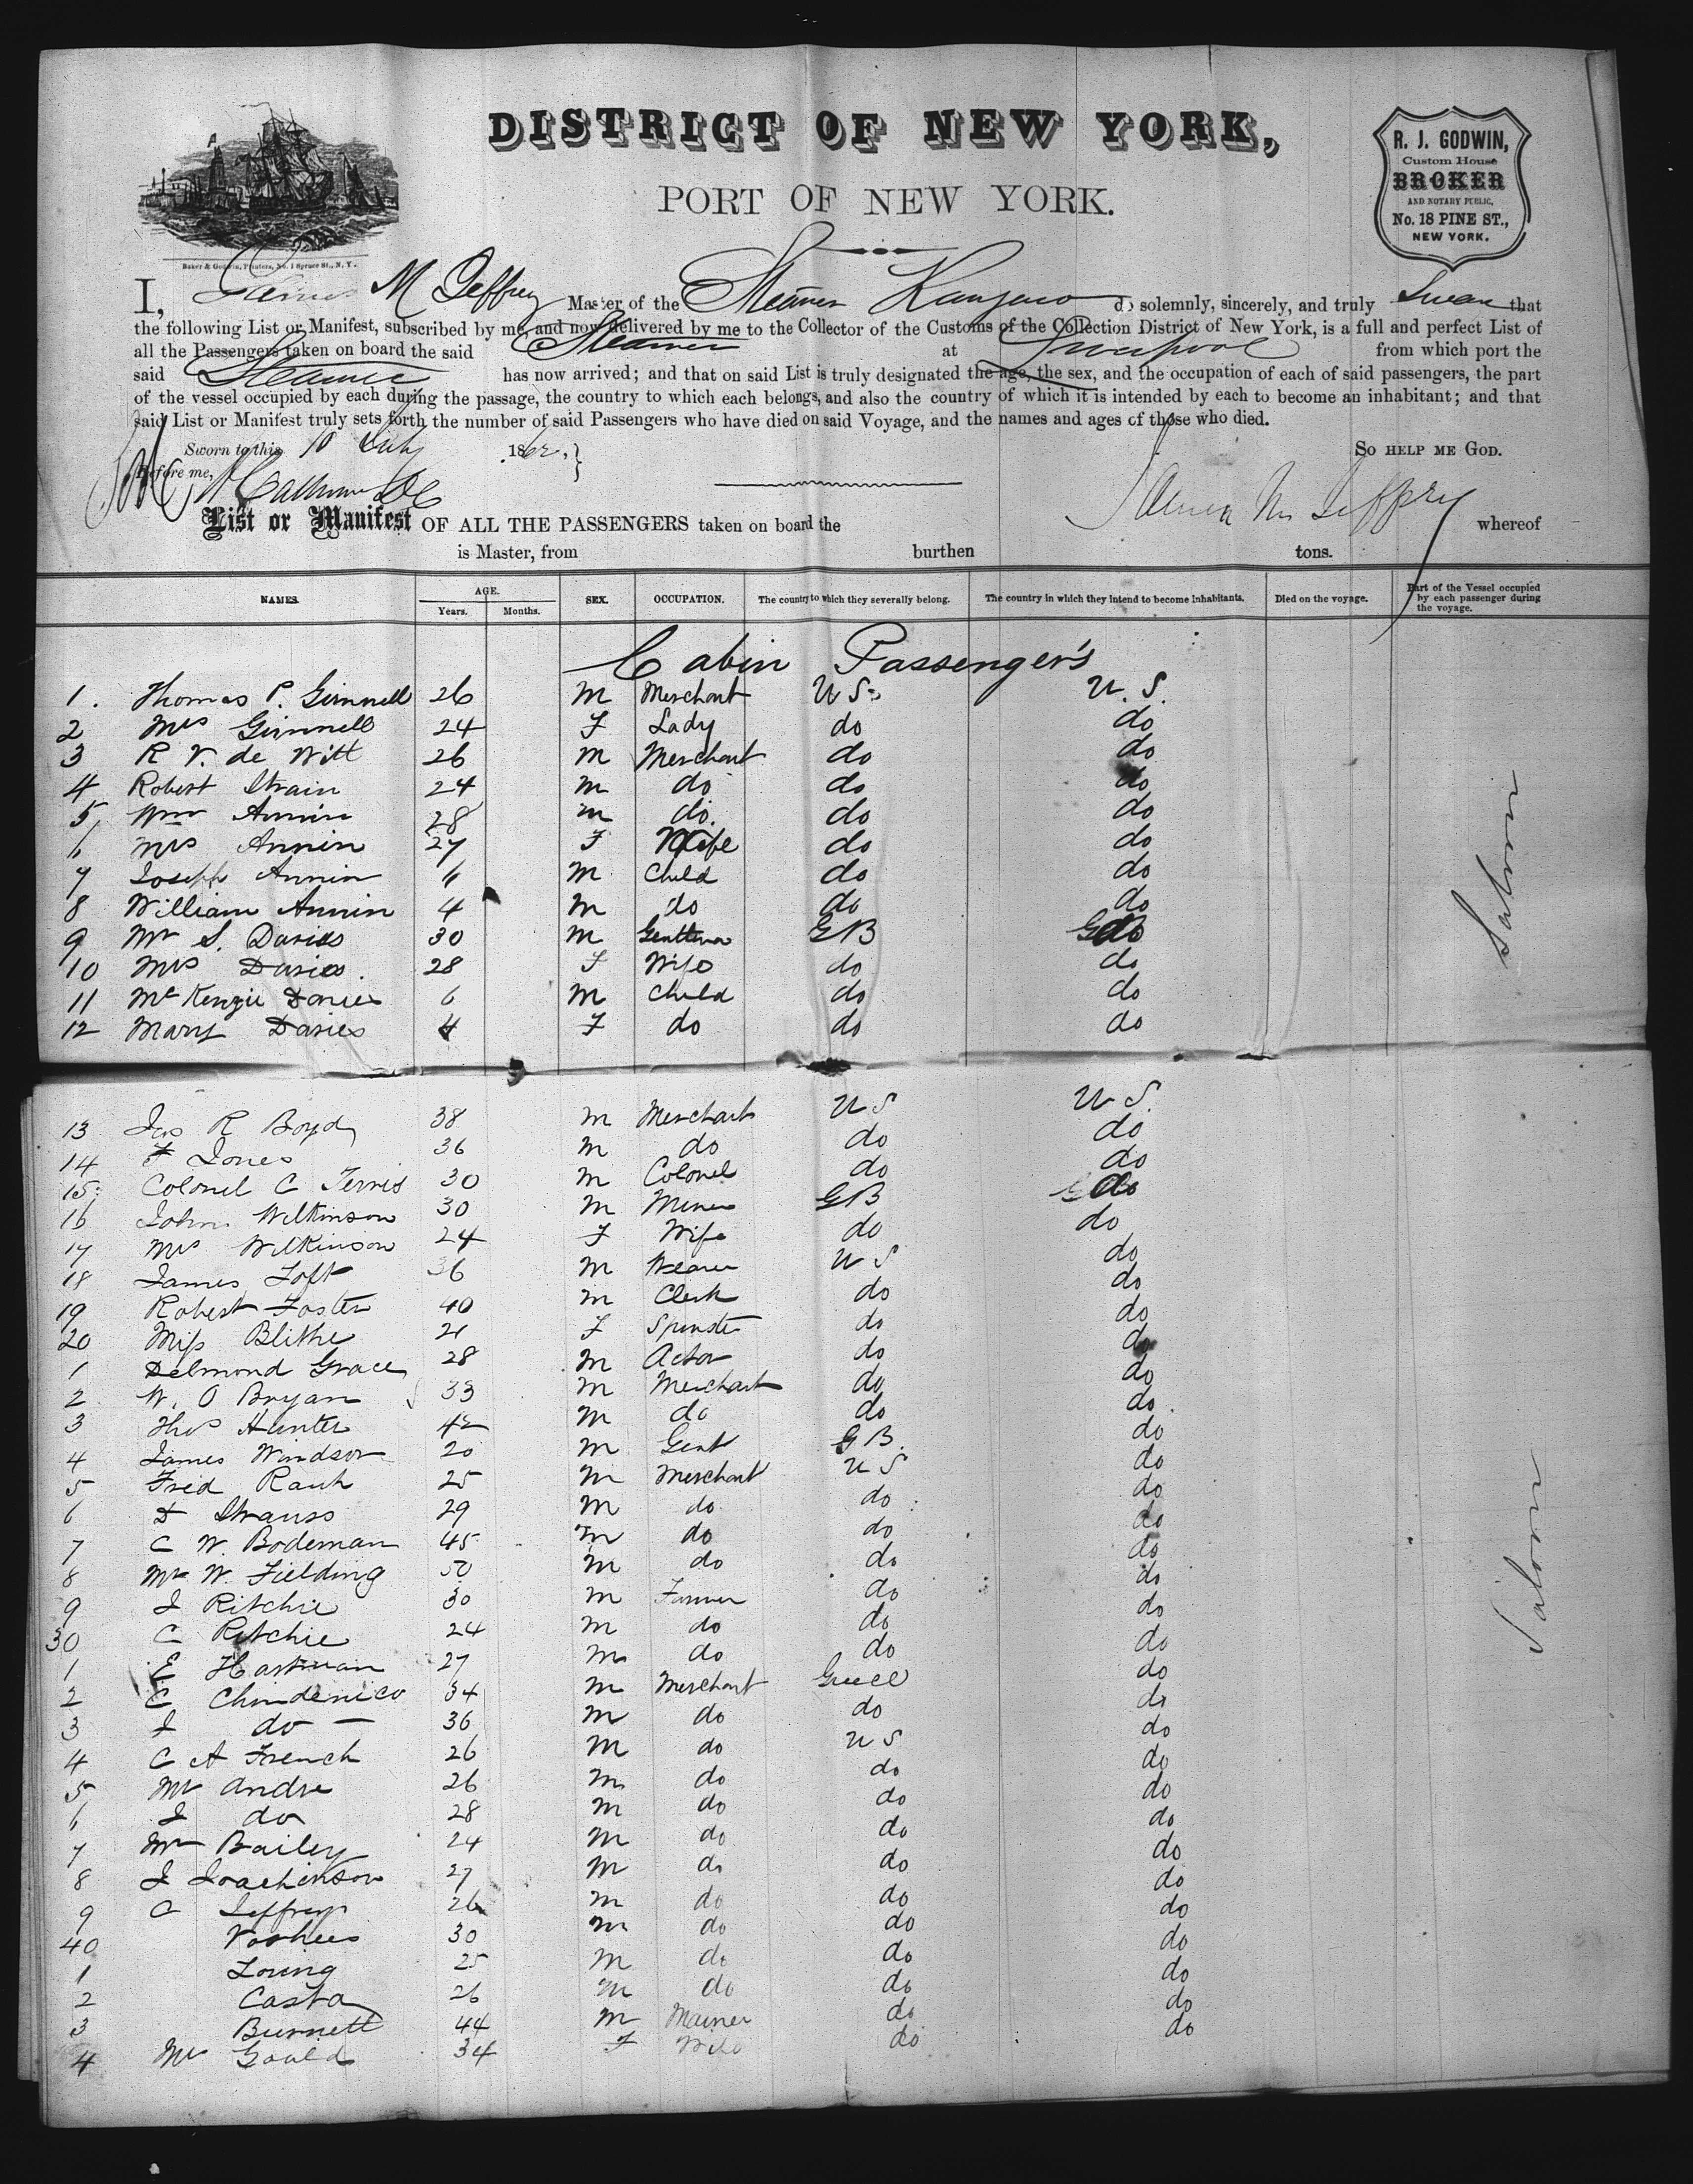 DISTRICT OF NEW YORK,
PORT OF NEW YORK.
R. J. GODWIN,
Custom House
BROKER
AND NOTARY PUBLIC,
No. 18 PINE ST.,
NEW YORK.
Baker & Godwin, Printers, No. 1 Spruce St., N. Y.
I, James M Jeffrey Master of the Steamer Kangaroo do solemnly, sincerely, and truly Swear that
the following List or Manifest, subscribed by me, and now delivered by me to the Collector of the Customs of the Collection District of New York, is a full and perfect List of
all the Passengers taken on board the said Steamer at Liverpool from which port the
said Steamer has now arrived; and that on said List is truly designated the age, the sex, and the occupation of each of said passengers, the part
of the vessel occupied by each during the passage, the country to which each belongs, and also the country of which it is intended by each to become an inhabitant; and that
said List or Manifest truly sets forth the number of said Passengers who have died on said Voyage, and the names and ages of those who died.
Sworn to this 10 July 1862. SO HELP ME GOD.
Before me, Calhoun
James M Jeffrey
List or Manifest OF ALL THE PASSENGERS taken on board the whereof
is Master, from burthen tons.
NAMES. AGE. Years. Months. SEX. OCCUPATION. The country to which they severally belong. The country in which they intend to become inhabitants. Died on the voyage. Part of the Vessel occupied by each passenger during the voyage.
Cabin Passengers
1. Thomas P. Grinnell 26 M Merchant U S U. S.
2 Mrs Grinnell 24 F Lady do do
3 R V. de Witt 26 M Merchant do do
4 Robert Strain 24 M do do do
5 Wm Annin 28 M do. do do
6 Mrs Annin 27 F Wife do do
7 Joseph Annin 6 M Child do do
8 William Annin 4 M do do do
9 Mr S. Davies 30 M Gentleman GB do
10 Mrs Davies 28 F Wife do do
11 McKenzie Davies 6 M Child do do
12 Mary Davies 4 F do do do
Saloon
13 Jas R Boyd 38 M Merchant U S U S.
14 F Jones 36 M do do do
15 Colonel C 30 M Colonel do do
16 John Wilkinson 30 M Miner GB do
17 Mrs Wilkinson 24 F Wife do do
18 James Toft 36 M Weaver U S do
19 Robert Foster 40 M Clerk do do
20 Miss Blithe 21 F Spinster do do
1 Delmond Grace 28 M Actor do do
2 W. O Bryan 33 M Merchant do do
3 Thos Hunter 42 M do do do
4 James Windsor 20 M Gent GB. do
5 Fred Rauh 25 M Merchant U S do
6 D Strauss 29 M do do do
7 C W. Bodeman 45 M do do do
8 Mr W. Fielding 50 M do do do
9 J Ritchie 30 M Farmer do do
30 C Ritchie 24 M do do do
1 E Hartman 27 M do do do
2 C Chindenico 34 M Merchant Greece do
3 J do 36 M do do do
4 C A French 26 M do U S do
5 Mr Andre 26 M do do do
6 J do 28 M do do do
7 Mr Bailey 24 M do do do
8 J Joachinson 27 M do do do
9 C Jeffreys 26 M do do do
40 Voohees 30 M do do do
1 Loring 25 M do do do
2 Casta 26 M do do do
3 Burnett 44 M Mariner do do
4 Mrs Gould 34 F Wife do do
Saloon